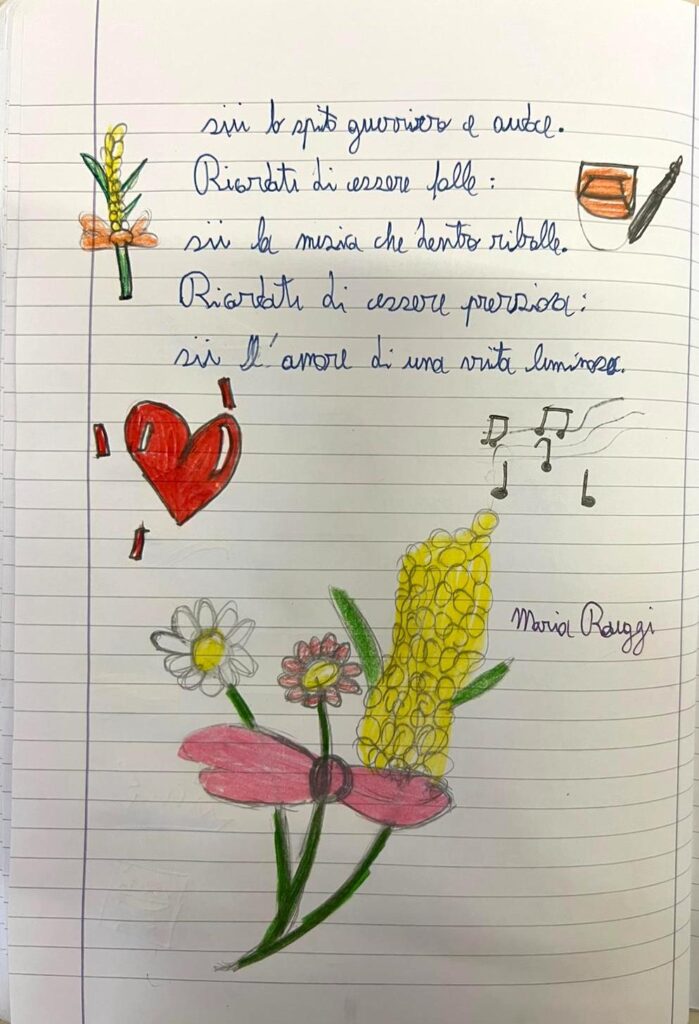 sii lo spirito guerriero e audace.
Ricordati di essere folle:
sii la musica che dentro ribolle.
Ricordati di essere preziosa:
sii l'amore di una vita luminosa.
Maria Rauggi